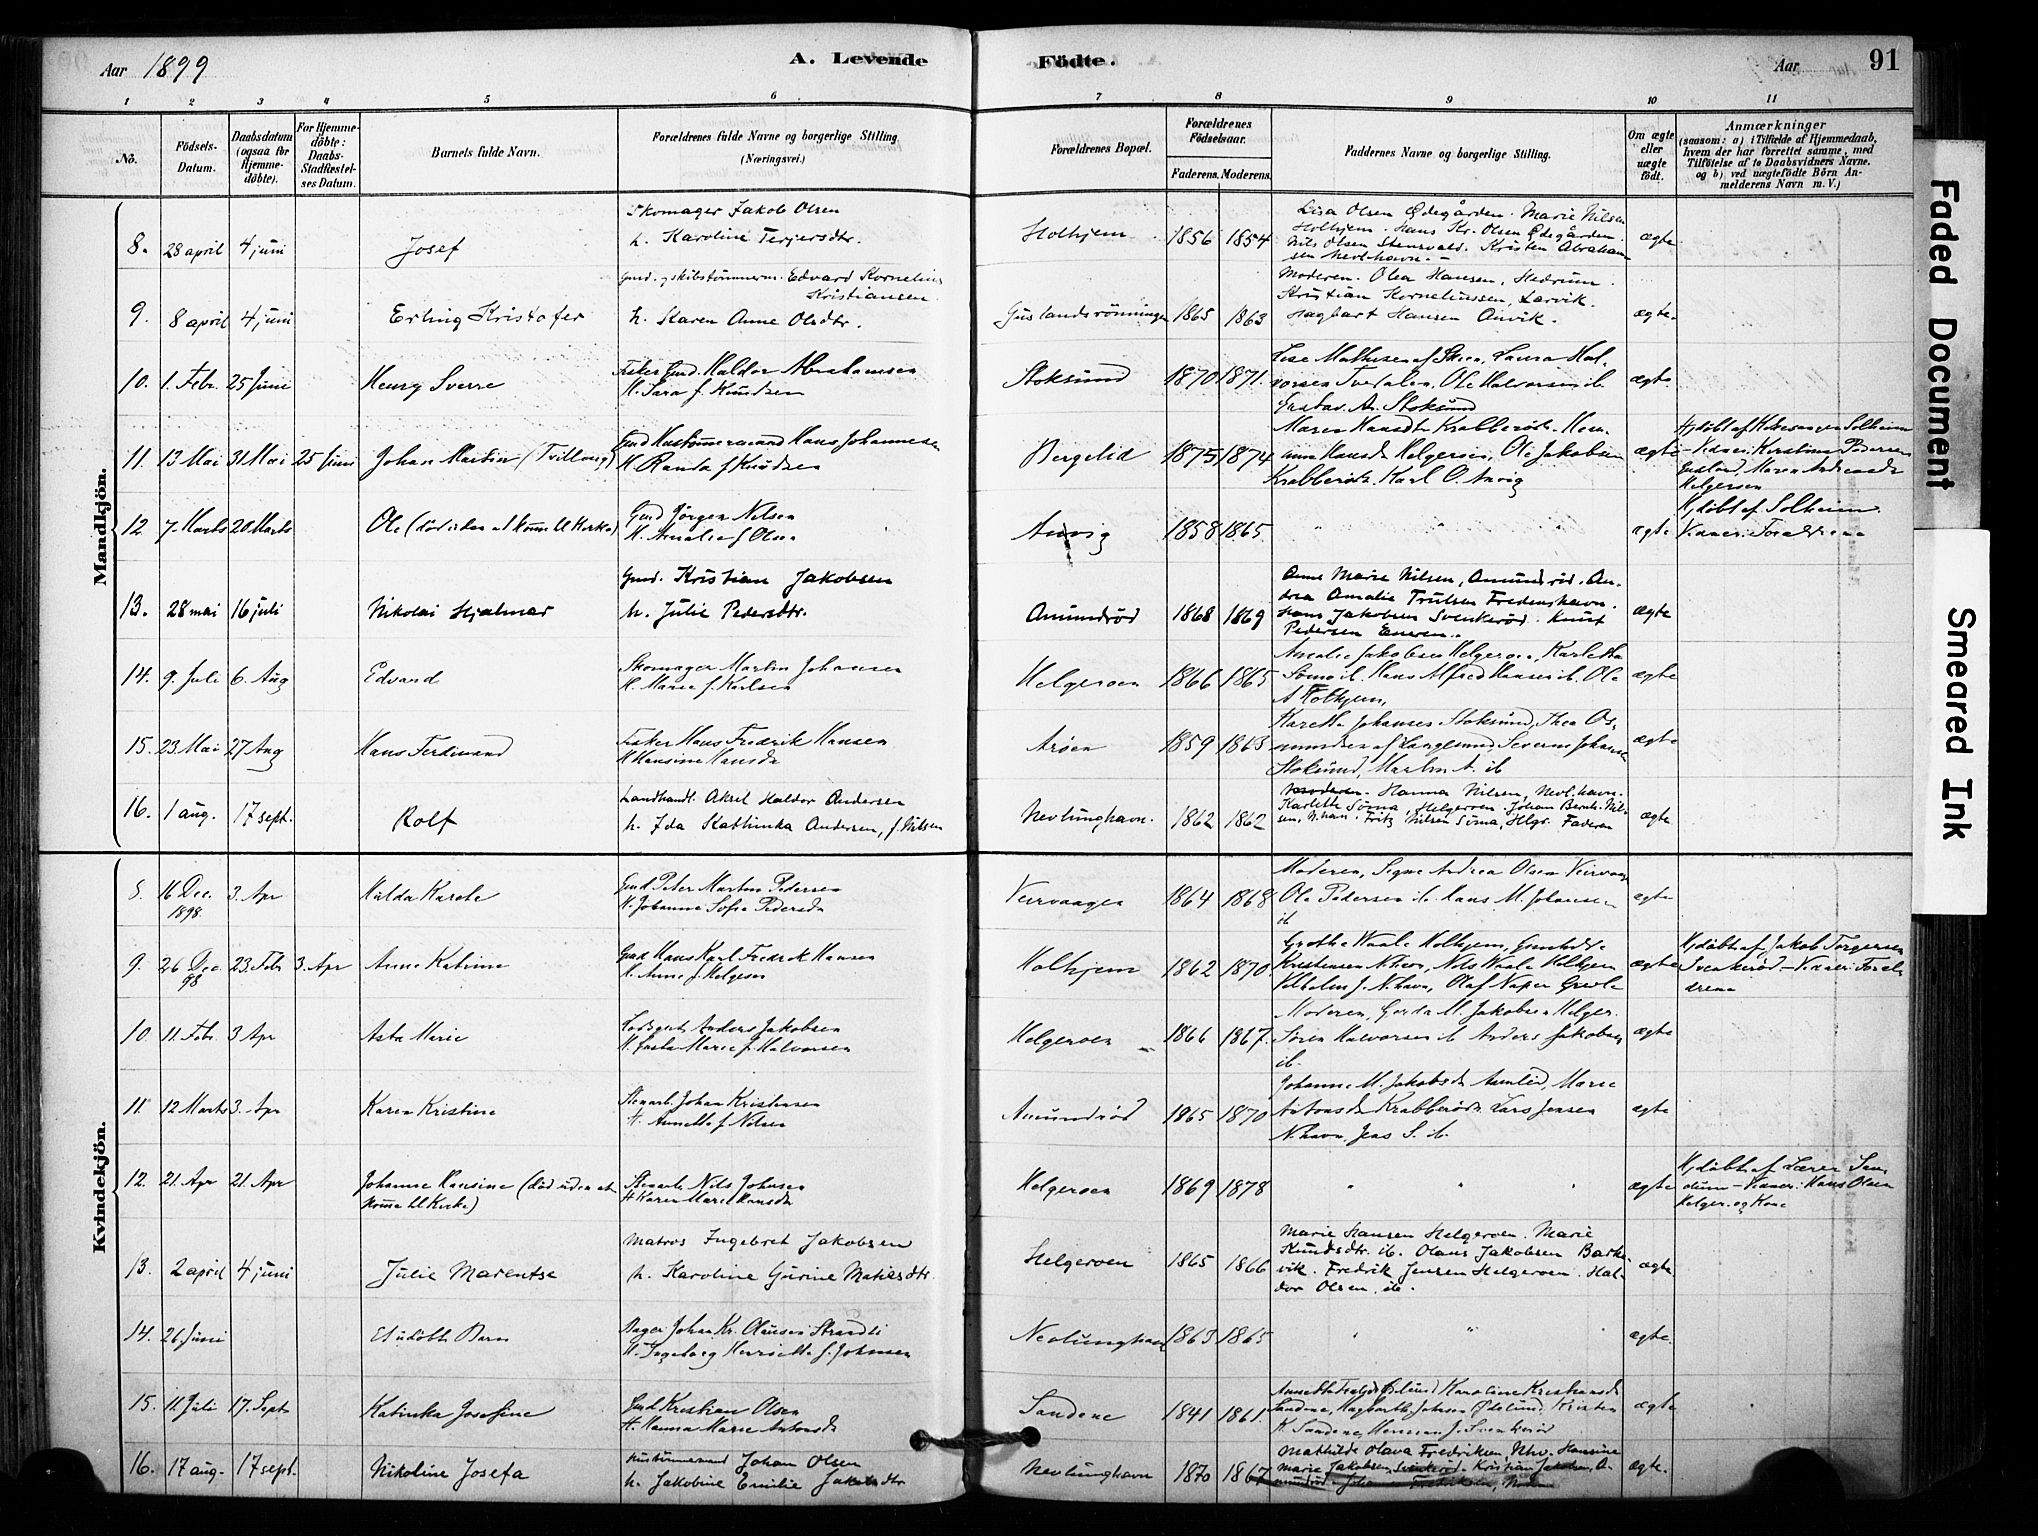 Aar 1899
A. Levende Födte.
Aar 91
1 2 3 4 5 6 7 8 9 10 11
No.
Födsels-Datum.
Daabsdatum (ogsaa for Hjemme-döbte).
For Hjemme-döbte: Daabs-Stadfæstel-ses Datum.
Barnets fulde Navn.
Forældrenes fulde Navne og borgerlige Stilling. (Næringsvei.)
Forældrenes Bopæl.
Forældrenes Födselsaar.
Faderens. Moderens.
Faddernes Navne og borgerlige Stilling.
Om ægte eller uægte födt.
Anmærkninger
(saasom: a) i Tilfælde af Hjemmedaab,
hvem der har forrettet samme, med
Tilföielse af to Daabsvidners Navne.
og b) ved uægtefödte Börn An-
melderens Navn m. V.)
Mandkjön.
8. 28 april 4 juni Josef
Skomager Jakob Olsen
h. Karoline Terjersdtr.
Holhjem 1856 1854
Lisa Olsen Ødegården. Marie Nilsen
Holhjem. Hans Kr. Olsen Ødegården.
Nils Olsen Stensvald. Kristen Abraham-
sen Nevl.havn. -
ægte
9. 8 april 4 juni Erling Kristofer
Gmd. & skibstömmerm. Edvard Kornelius
Kristiansen
h. Karen Anne Olsdtr.
Guslandsrönningen 1865 1863
Moderen. Olea Hansen, Hedrum.
Kristian Korneliussen, Larvik.
Hagbart Hansen Anvik.
ægte.
10. 1. Febr. 25 Juni Henry Sverre
Fisker Gmd. Haldor Abrahamsen
H. Sara f. Knudsen
Stoksund 1870 1871.
Lise Mathisen af Skien, Laura Hal-
vorsen Tvedalen, Ole Halvorsen ib.
Gustav An. Stoksund
ægte
11. 13 Mai 31 Mai 25 Juni Johan Martin (Tvilling)
Gmd Hustömmermand Hans Johannesen
H. Randa f. Knudsen
Bergelid 1875 1874
Maren Hansdtr Krabberöd.
Anna Hansd. Helgeroen, Ole Jakobsen
Krabberöd. Karl O. Anvig
ægte
Hjdöbt af Solheim
- Vidner: Kirstine Pedersen
Gusland, Maren Andreasdr
Helgeroen
12 7. Marts 20 Marts Ole (död uden at komme til Kirke)
Gmd Jörgen Nilsen
H. Amalie f. Olsen
Anvig 1858 1865 " " "
ægte
Hjdöbt af Solheim
Vidner: Forældrene
13. 28 mai 16 juli Nikolai Hjalmar
Gmd. Kristian Jakobsen
h. Julie Pedersdtr.
Amundröd 1868 1869
Anne Marie Nilsen, Amundröd. An-
drea Amalie Trulsen Fredenshavn.
Hans Jakobsen Svenkeröd. Knut
Pedersen Eneren.
ægte
14. 9. Juli 6. Aug Edvard
Skomager Martin Johansen
H. Maren f. Karlsen
Helgeroen 1866 1865
Amalie Jakobsen Helgeroen, Karlette
Söma ib. Hans Alfred Hansen ib. Ole
A Holhjem,
ægte
15. 23 Mai 27 Aug Hans Ferdinand
Fisker Hans Fredrik Hansen
H Hansine Hansdr
Aröen 1859 1863
Karette Johanses Stoksund, Thea Os-
mundsen af Langesund, Severin Johansen
Stoksund, Martin A. ib
ægte
16. 1 aug. 17 sept. Rolf
Landhandl. Aksel Haldor Andersen
h. Ida Kathinka Andersen, f. Nilsen
Nevlunghavn. 1862 1862
Moderen. Hanna Nilsen, Nevl.havn.
Karlette Söma, Helgeroen. Johan Bernh. Nil-
sen, N.havn. Fritz Nilsen Söma, Hlgr. Faderen
ægte
Kvindekjön.
8. 16 Dec. 1898. 3. Apr Hilda Karete
Gmd Peter Martin Pedersen
H. Johanne Sofie Pedersdr
Veirvaagen 1864 1868
Moderen, Signe Andrea Olsen Veirvaag
Ole Pedersen ib. Hans M. Johansen
ib
ægte
9. 26 Dec. 98 23. Febr 3. Apr Anne Katrine
Gmd Hans Karl Fredrik Hansen
H. Anne f. Helgesen
Holhjem 1862 1870
Grethe Waale Holhjem, Gunhilde
Kristensen N.havn, Nils Waale Holhjem
Vilhelm J. N.havn, Olaf Naper Grevle
ægte
Hjdöbt af Jakob Torgersen
Svenkeröd - Vidner: Foræl-
drene
10 11. Febr 3 Apr Asta Marie
Lodsgut Anders Jakobsen
H. Gusta Marie f. Halvorsen
Helgeroen 1866 1867.
Moderen, Gerda M. Jakobsen Helger.
Sören Halvorsen ib Anders Jakobsen
ib.
ægte
11. 12 Marts 3. Apr Karen Kristine
Stenarb. Johan Kristensen
H. Annette f. Nilsen
Amundröd 1865 1870
Johanne M. Jakobsdr Aamlid, Marie
Antonsdr Krabberöd. Lars Jensen
N.havn, Jens S. ib.
ægte
12. 21. Apr 21. Apr Johanne Hansine (död uden at
komme til Kirke)
Stenarb. Nils Johnsen
H Karen Marie Hansdr
Helgeroen 1869 1878 " " "
ægte
Hjdöbt af Lærer Sun-
dum - Vidner: Hans Olsen
Helger. og Kone
13. 2 april 4 juni Julie Marentse
Matros Ingebret Jakobsen
h. Karoline Gurine Matiasdtr.
Helgeroen 1865 1866
Marie Hansen Helgeroen. Marie
Knudsdtr. ib. Olaus Jakobsen Barke-
vik. Fredrik Jensen Helgeroen. Hal-
dor Olsen, ib.
ægte.
14. 26 Juni Et udöbt Barn
Bager Johan Kr. Olausen Strandli
H. Ingeborg Henriette f. Johnsen
Nevlunghavn 1863 1865 " " "
ægte.
15. 11. Juli 17. Sept Katinka Josefine
Gmd Kristian Olsen
H. Hanna Marie Antonsdr
Sandene 1841 1861.
Karoline Kristiansdr
Sandene, Hagbarth Johnsen Ødelund, Kristen
K. Sandene, Herman J. Svenkeröd
ægte
16. 17 aug. 17 sept. Nikoline Josefa
Hustömmermand Johan Olsen
h. Jakobine Emilie Jakobsdtr
Nevlunghavn 1870 1867
Mathilde Olava Fredriksen, Nhv. Hansine
Marie Jakobsen, Svenkeröd. Kristian Jakobsen, A-
mundröd. Johannes Fredriksen,
ægte.
Faded Document
Smeared Ink